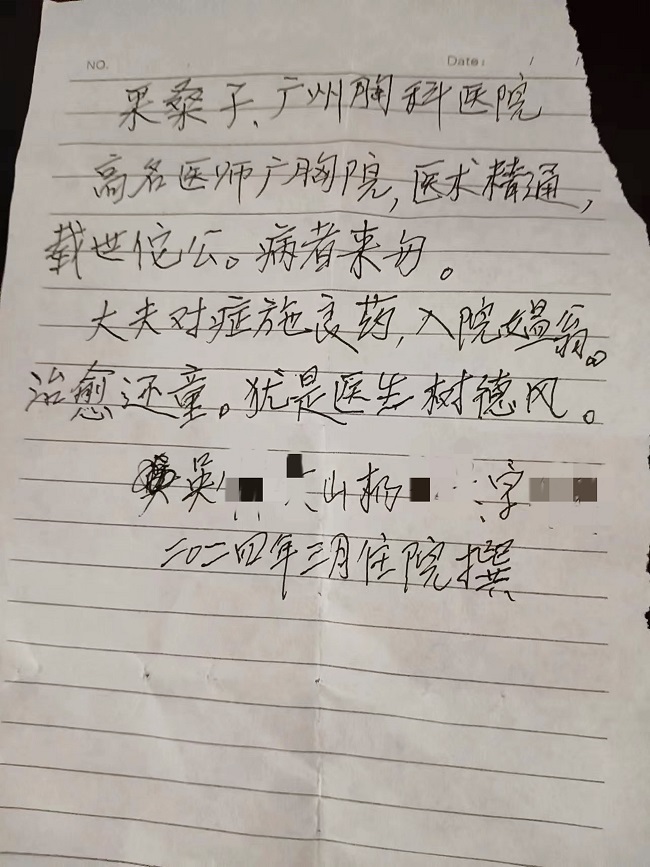 NO. Date: / /
采桑子、广州胸科医院
高名医师广胸院,医术精通,
载世佗公。病者来匆。
大夫对症施良药,入院媪翁。
治愈还童。犹是医生树德风。
英 山杨 字
二〇二四年三月住院撰